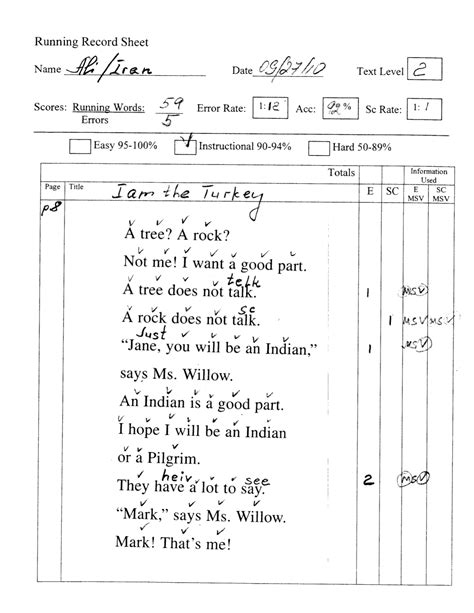 Running Record Sheet
Name Ali/Iran Date 09/27/10 Text Level 2
Scores: Running Words: 59 Error Rate: 1:12 Acc: % Sc Rate: 1:1
Errors 5
Easy 95-100% ✓ Instructional 90-94% Hard 50-89%
Totals Information Used
Page Title E SC E MSV SC MSV
p8 I am the Turkey
A tree? A rock?
Not me! I want a good part.
telk
A tree does not talk. 1 MSV
sc
A rock does not talk. 1 MSV MSV
Just
“Jane, you will be an Indian,” 1 MSV
says Ms. Willow.
An Indian is a good part.
I hope I will be an Indian
or a Pilgrim.
heiv see
They have a lot to say. 2 MSV
“Mark,” says Ms. Willow.
Mark! That's me!